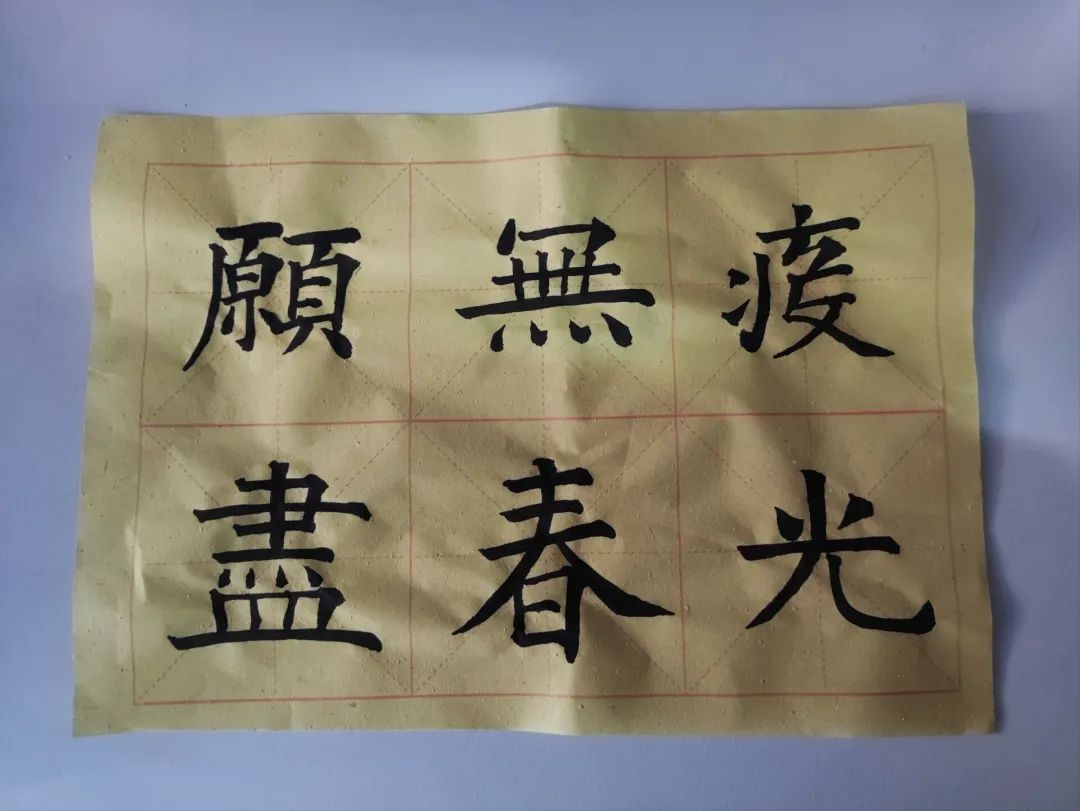 願無疫
盡春光